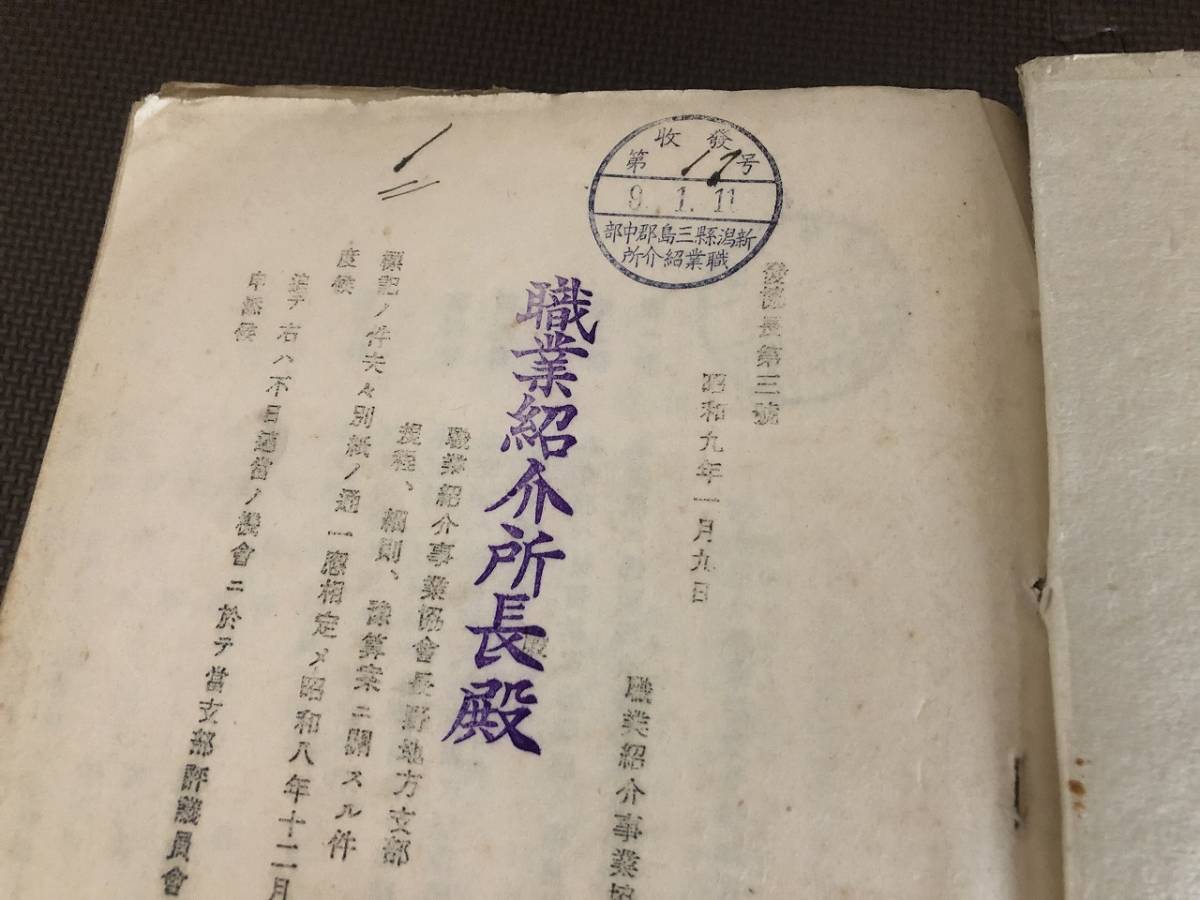 收發
第17号
9.1.11
新潟縣三島郡中部
職業紹介所
1
發協長第三號
昭和九年一月九日
職業紹介事業協
職業紹介所長殿
職業紹介事業協會長野地方支部
規程、細則、豫算案ニ關スル件
標記ノ件夫々別紙ノ通一應相定メ昭和八年十二月
度候
追テ右ハ不日適當ノ機會ニ於テ當支部評議員會
申添候